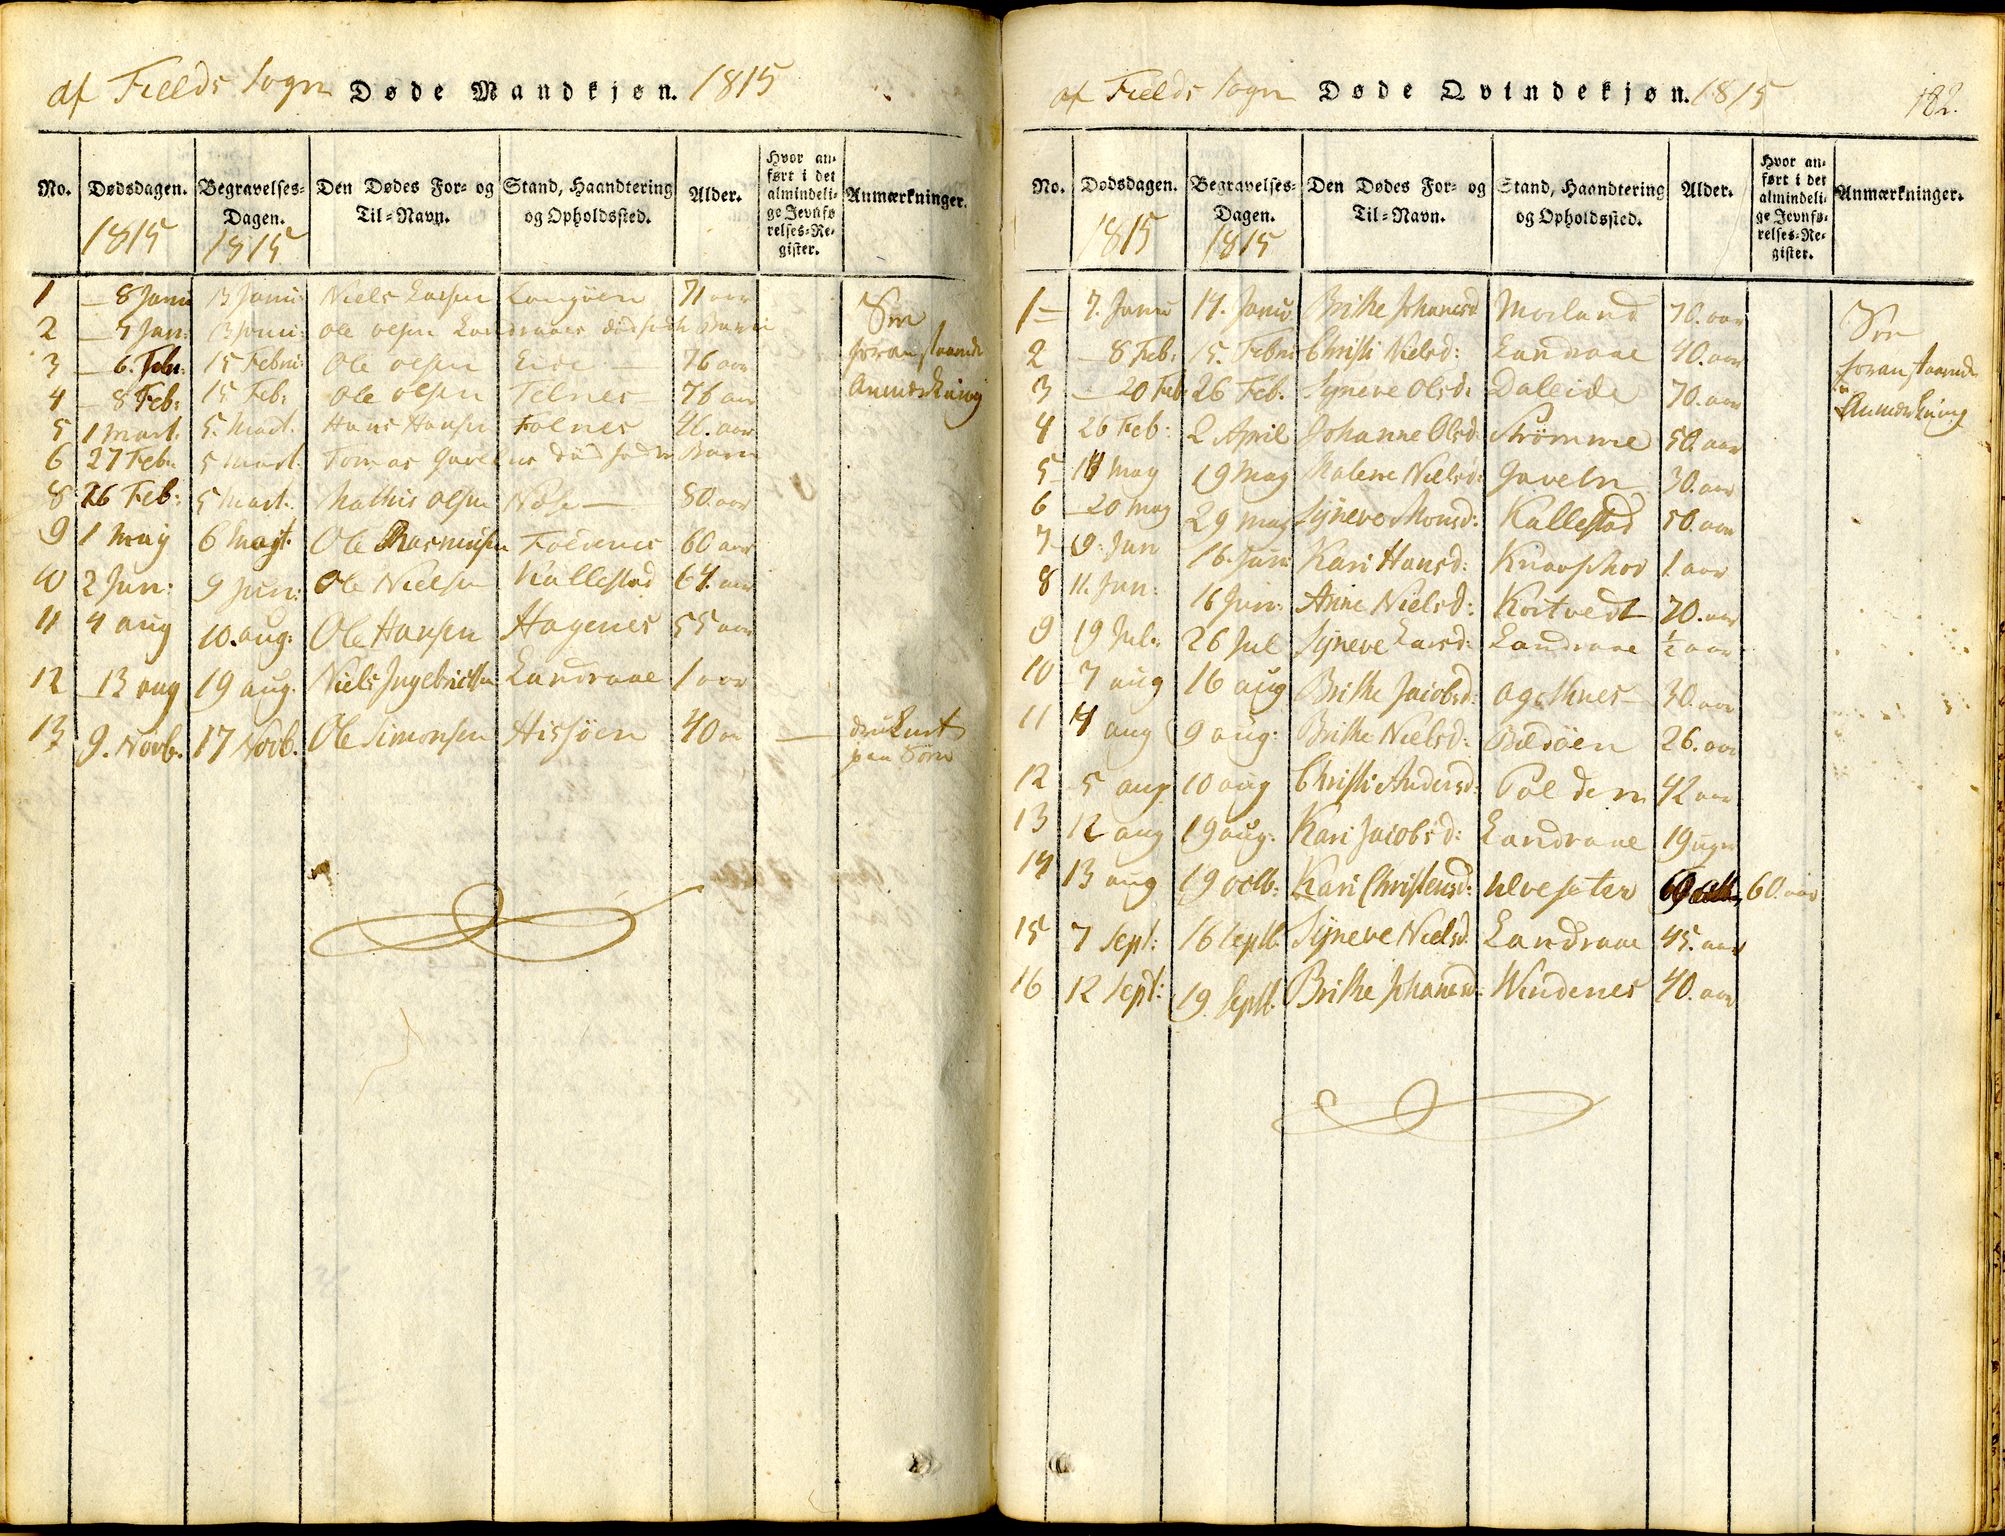 af Fields Sogn Døde Mandkjøn. 1815
No. Dødsdagen. 1815 Begravelses-Dagen. 1815 Den Dødes For- og Til-Navn. Stand, Haandtering og Opholdssted. Alder. Hvor anført i det almindelige Jevnførelses-Register. Anmærkninger.
1 8 Janu 13 Janu: Niels Larsen Langøen 71 aar See
2 5 Jan: 13 Janu: Ole Olsen Landraaes dødfødt Barn foranstaaende
3 6. Febr: 15 Febru: Ole Olsen Eide 76 aar
4 8 Feb: 15 Feb: Ole Olsen Telnes 76 aar Anmærkning
5 1 Mart. 5. Mart. Hans Hansen Folnes 46. aar
6 27 Feb: 5 Mart. Tomas Gavelns dødfødt Barn
8 26 Feb: 5 Mart. Mathis Olsen Nøse 80. aar
9 1 May 6 May Ole Rasmusen 60 aar
10 2 Jun: 9 Jun: Ole Nielsen Kallestad 64. aar
11 4 aug 10. aug: Ole Hansen Hagenes 55 aar
12 13 aug 19 aug. Niels Ingebrictsen Landraae 1 aar
13 9. Novb. 17 Novb. Ole Simonsen Hisøen 40 aar druknet
paa Søen
af Fields Sogn Døde Qvindekjøn. 1815 182.
No. Dødsdagen. 1815 Begravelses-Dagen. 1815 Den Dødes For- og Til-Navn. Stand, Haandtering og Opholdssted. Alder. Hvor anført i det almindelige Jevnførelses-Register. Anmærkninger.
1 7. Janu 14. Janu Brithe Johanesd Morland 70. aar See
2 8 Feb: 15. Febru Christi Nielsd: Landraae 40. aar foranstaaende
3 20 Feb 26 Feb. Syneve Olsd: Daleide 70. aar Anmærkning
4 26 Feb: 2 April Johanne Olsd: Strømme 50. aar
5 14 May 19 May Malene Nielsd: Gaveln 30. aar
6 20 May 29 May Syneve Monsd: Kallestad 50. aar
7 9. Jun 16. Jun: Kari Hansd: 1 aar
8 11. Jun: 16 Jun: Anne Nielsd: Kortvedt 70. aar
9 19 Jul. 26 Jul Syneve Larsd: Landraae ½ aar
10 7 aug 16 aug Brithe Jacobsd: Agothnes 30. aar
11 4 aug 9 aug: Brithe Nielsd: Bildøen 26. aar
12 5 aug 10 aug Christi Andersd: Polden 42 aar
13 12 aug 19 aug: Kari Jacobsd: Landraae 19 uger
14 13 aug 19 octb: Kari Christensd: Ulveseter 60 aar
15 7 Sept: 16 Septb. Syneve Nielsd. Landraae 45. aar
16 12 Sept: 19 Septb. Brithe Johanesd: Windenes 40. aar